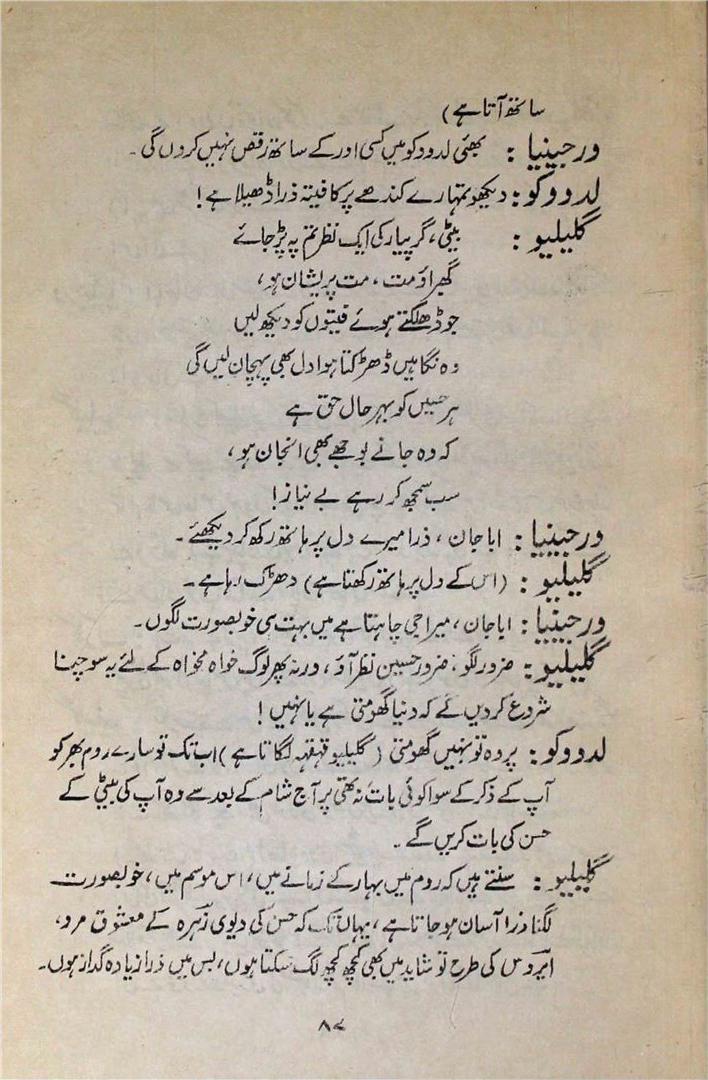 ساتھ آتا ہے)
ورجینیا : بھئی لدوو کو میں کسی اور کے ساتھ رقص نہیں کروں گی۔
لدوو کو: دیکھو تمہارے کندھے پر کا فیتہ ذرا ڈھیلا ہے!
گلیلیو : بیٹی، گر پیار کی ایک نظر تم پہ پڑ جائے
گھبراؤ مت، مت پریشان ہو،
جو ڈھلکتے ہوئے فیتوں کو دیکھ لیں
وہ نگاہیں ڈھڑکتا ہوا دل بھی پہچان لیں گی
ہر حسیں کو بہر حال حق ہے
کہ وہ جانے بوجھے بھی انجان ہو،
سب سمجھ کر رہے بے نیاز!
ورجینیا : ابا جان، ذرا میرے دل پر ہاتھ رکھ کر دیکھئے۔
گلیلیو : (اس کے دل پر ہاتھ رکھتا ہے) دھڑک رہا ہے۔
ورجینیا : ابا جان، میرا جی چاہتا ہے میں بہت ہی خوبصورت لگوں۔
گلیلیو : ضرور لگو، ضرور حسین نظر آؤ، ورنہ پھر لوگ خواہ مخواہ کے لئے یہ سوچنا
شروع کر دیں گے کہ دنیا گھومتی ہے یا نہیں!
لدوو کو : پر وہ تو نہیں گھومتی (گلیلیو قہقہہ لگاتا ہے) اب تک تو سارے روم بھر کو
آپ کے ذکر کے سوا کوئی بات نہ تھی پر آج شام کے بعد سے وہ آپ کی بیٹی کے
حسن کی بات کریں گے۔
گلیلیو : سنتے ہیں کہ روم میں بہار کے زمانے میں، اس موسم میں، خوبصورت
لگنا ذرا آسان ہو جاتا ہے، یہاں تک کہ حسن کی دیوی زہرہ کے معشوق مرد،
ایروس کی طرح تو شاید میں بھی کچھ کچھ لگ سکتا ہوں، بس میں ذرا زیادہ گداز ہوں۔
۸۷